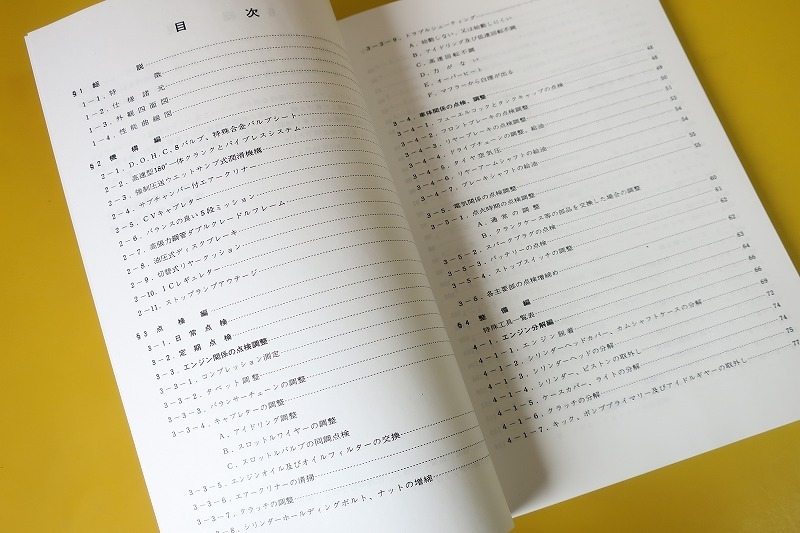 目　次
§1 総　説
1－1. 特　徴
1－2. 仕様諸元
1－3. 外観四面図
1－4. 性能曲線図
§2 機　構　編
2－1. D.O.H.C. 8バルブ、特殊合金バルブシート
2－2. 高速型180°一体クランクとパイプレスシステム
2－3. 強制圧送ウエットサンプ式潤滑機構
2－4. サブチャンバー付エアークリナー
2－5. CVキャブレター
2－6. バランスの良い5段ミッション
2－7. 高張力鋼管ダブルクレードルフレーム
2－8. 油圧式ディスクブレーキ
2－9. 切替式リヤークッション
2－10. ICレギュレター
2－11. ストップランプアウテージ
§3 点　検　編
3－1. 日常点検
3－2. 定期点検
3－3. エンジン関係の点検調整
3－3－1. コンプレッション測定
3－3－2. タペット調整
3－3－3. バランサーチェーンの調整
3－3－4. キャブレターの調整
A. アイドリング調整
B. スロットルワイヤーの調整
C. スロットルバルブの同調点検
3－3－5. エンジンオイル及びオイルフィルターの交換
3－3－6. エアークリナーの清掃
3－3－7. クラッチの調整
3－8. シリンダーホールディングボルト、ナットの増締
3－3－9. トラブルシューティング
A. 始動しない、又は始動しにくい
B. アイドリング及び低速回転不調
C. 高速回転不調
D. 力がない
E. オーバーヒート
F. マフラーから白煙が出る
3－4. 車体関係の点検、調整 48
3－4－1. フューエルコックとタンクキャップの点検 48
3－4－2. フロントブレーキの点検調整 49
3－4－3. リヤーブレーキの点検調整 50
3－4－4. ドライブチェーンの調整、給油 51
3－4－5. タイヤ空気圧 54
3－4－6. リヤーアームシャフトの給油 54
3－4－7. ブレーキシャフトの給油 55
3－5. 電気関係の点検調整 55
3－5－1. 点火時期の点検調整
A. 通常の調整 60
B. クランクケース等の部品を交換した場合の調整 61
3－5－2. スパークプラグの点検 62
3－5－3. バッテリーの点検 62
3－5－4. ストップスイッチの調整 63
3－6. 各主要部の点検増締め 64
§4 整　備　編 66
特殊工具一覧表 66
4－1. エンジン分解編 69
4－1－1. エンジン脱着 72
4－1－2. シリンダーヘッドカバー、カムシャフトケースの分解 74
4－1－3. シリンダーヘッドの分解 74
4－1－4. シリンダー、ピストンの取外し 75
4－1－5. ケースカバー、ライトの分解 77
4－1－6. クラッチの分解
4－1－7. キック、ポンププライマリー及びアイドルギヤーの取外し